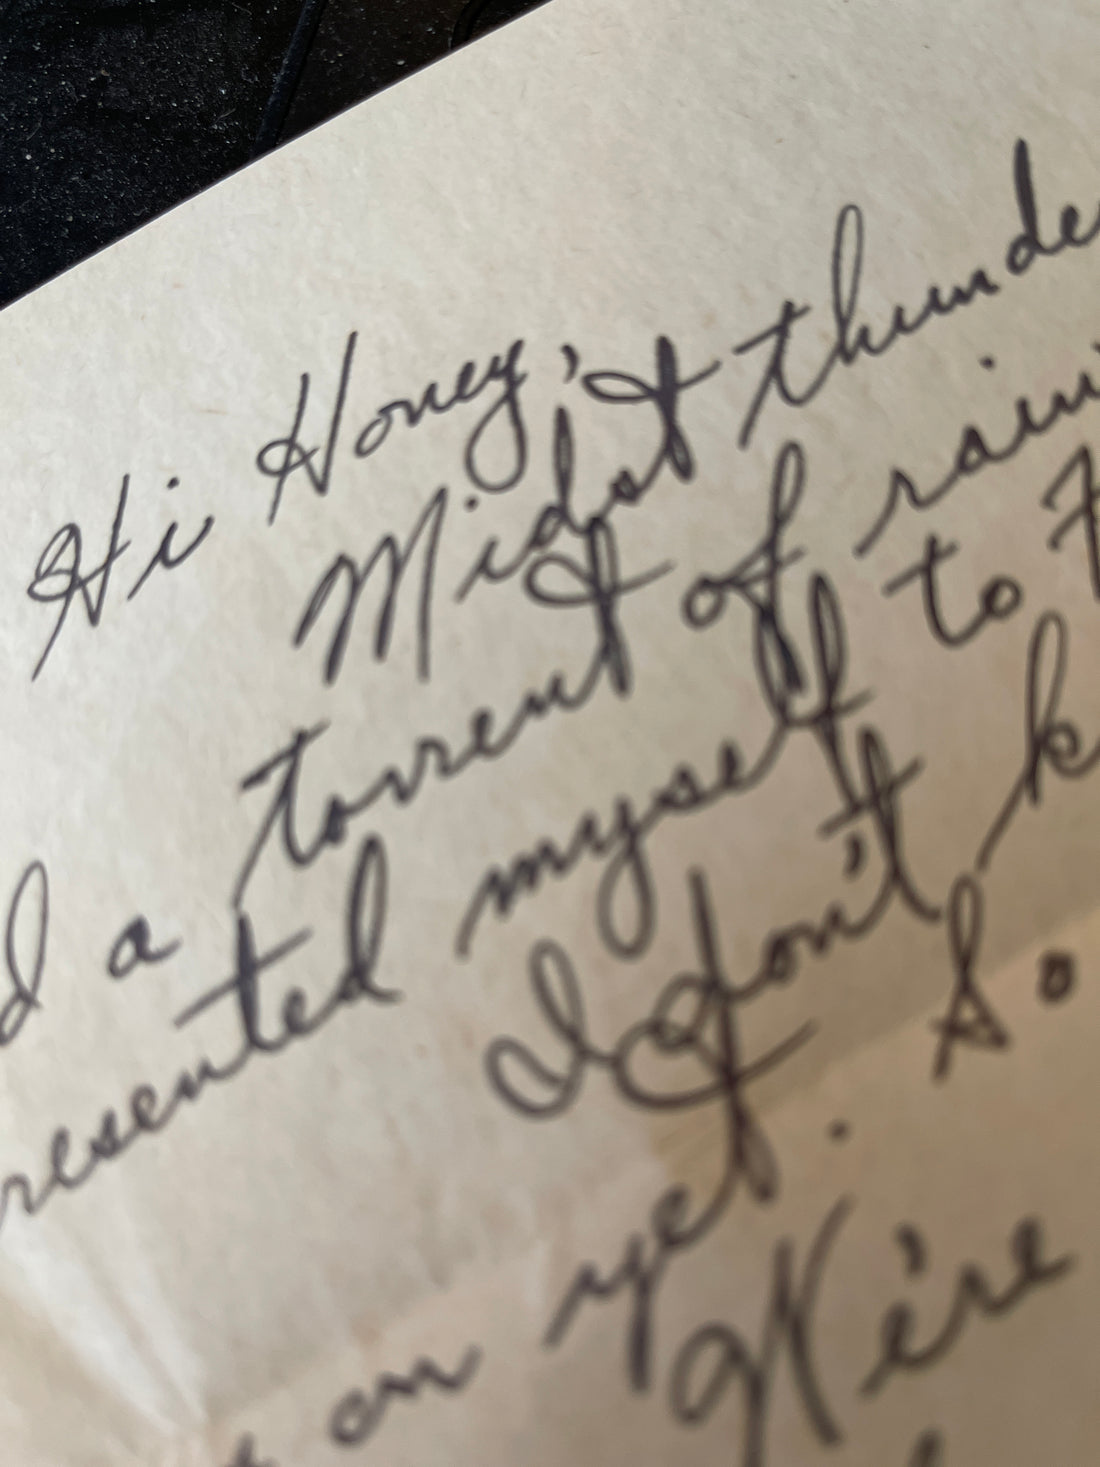 Hi Honey,
Midst thunde
d a torrent of rain
resented myself to
I don't k
on yet. So
We're